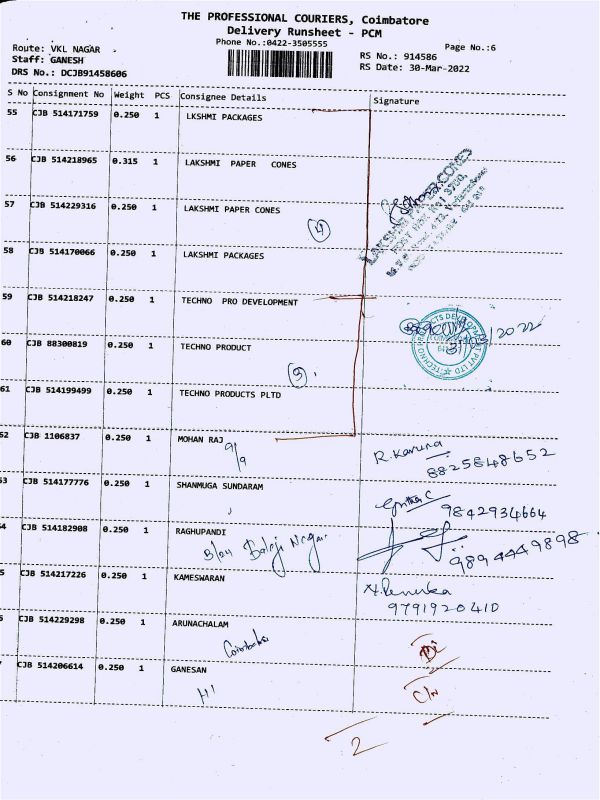 THE PROFESSIONAL COURIERS, Coimbatore
Delivery Runsheet - PCM
Phone No.:0422-3505555
Page No.:6
Route: VKL NAGAR
Staff: GANESH
DRS No.: DCJB91458606
RS No.: 914586
RS Date: 30-Mar-2022
S No Consignment No Weight PCS Consignee Details Signature
55 CJB 514171759 0.250 1 LKSHMI PACKAGES
56 CJB 514218965 0.315 1 LAKSHMI PAPER CONES
57 CJB 514229316 0.250 1 LAKSHMI PAPER CONES
4
LAKSHMI PAPER CONES
58 CJB 514170066 0.250 1 LAKSHMI PACKAGES
59 CJB 514218247 0.250 1 TECHNO PRO DEVELOPMENT
2022
60 CJB 88300819 0.250 1 TECHNO PRODUCT
3
61 CJB 514199499 0.250 1 TECHNO PRODUCTS PLTD
62 CJB 1106837 0.250 1 MOHAN RAJ
9/9
R. Karuna
8825848652
53 CJB 514177776 0.250 1 SHANMUGA SUNDARAM
9842934664
54 CJB 514182908 0.250 1 RAGHUPANDI
Balaji Nagar
9894449898
5 CJB 514217226 0.250 1 KAMESWARAN
Renuka
9791920410
6 CJB 514229298 0.250 1 ARUNACHALAM
Coimbatore
7 CJB 514206614 0.250 1 GANESAN
2